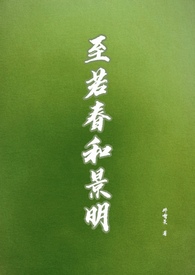 至若春和景明
著